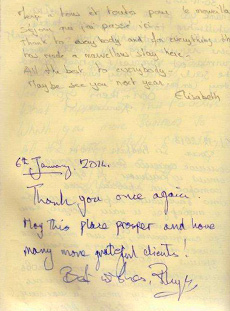 Merci à tous et toutes pour le merveill
séjour
Thank to everybody and for everything th
has made a marvellous stay here.
All the best to everybody.
Maybe see you next year.
Elisabeth
6th January 2014.
Thank you once again.
May this place prosper and have
many more grateful clients!
Best wishes,